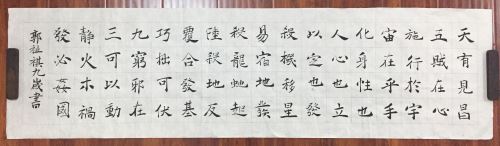 天有見昌
五賊在心
施行於宇
宙在乎手
化身性也
人心也立
以定也發
殺機移星
易宿地發
殺龍蛇起
陸殺地反
覆合發基
巧拙可伏
九竅邪在
三可以動
靜火木禍
發必姦國
郭祖祺九歲書